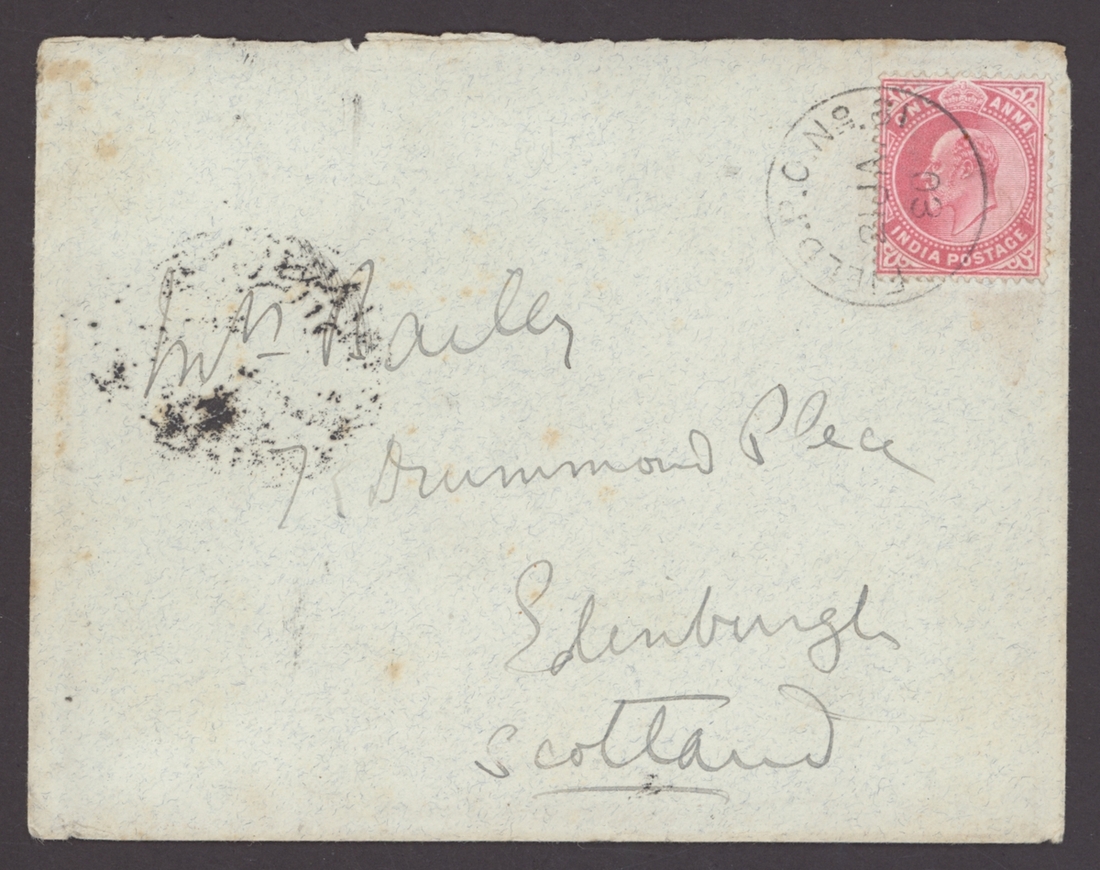 FIELD.P.O.No.
JA
03
ONE ANNA
INDIA POSTAGE
Mrs Bailey
7 Drummond Place
Edinburgh
Scotland